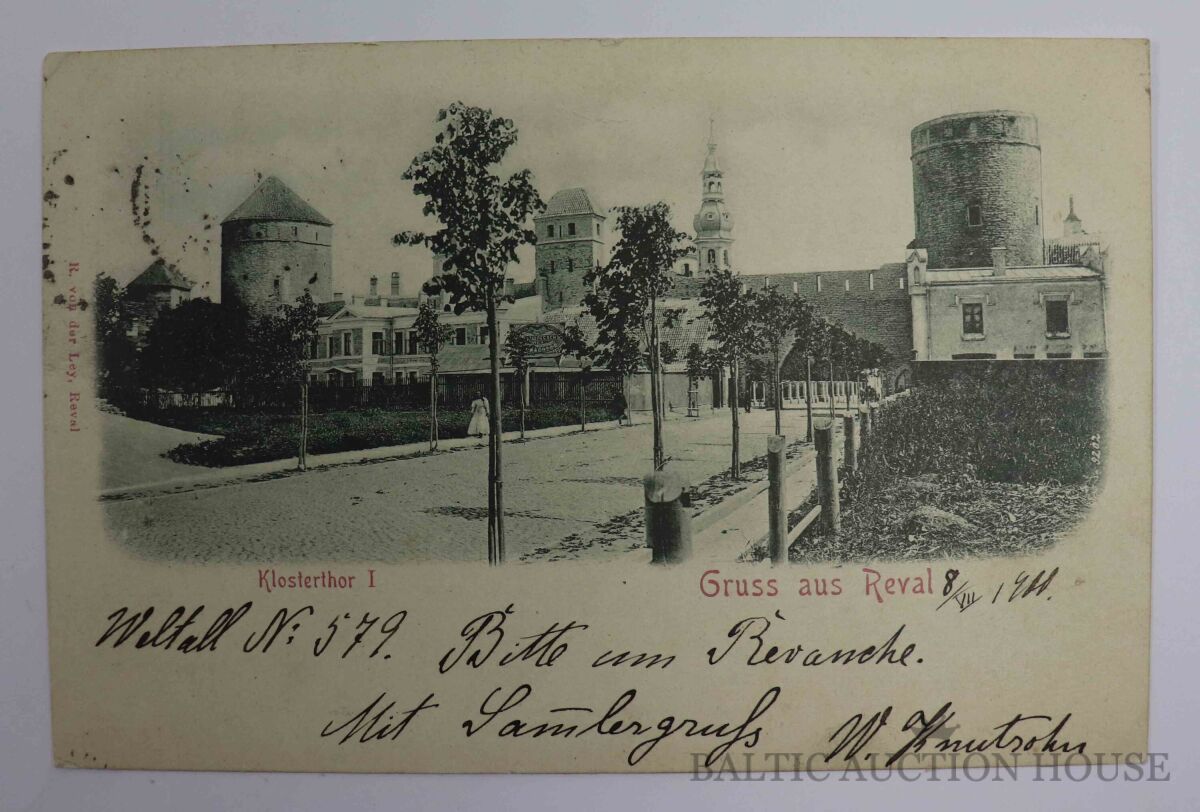 R. von der Ley, Reval
2202
Klosterthor I
Gruss aus Reval 8/VII 1900.
Weltall No: 579. Bitte um Revanche.
Mit Sam̅lergruß W. Knutsohn
BALTIC AUCTION HOUSE